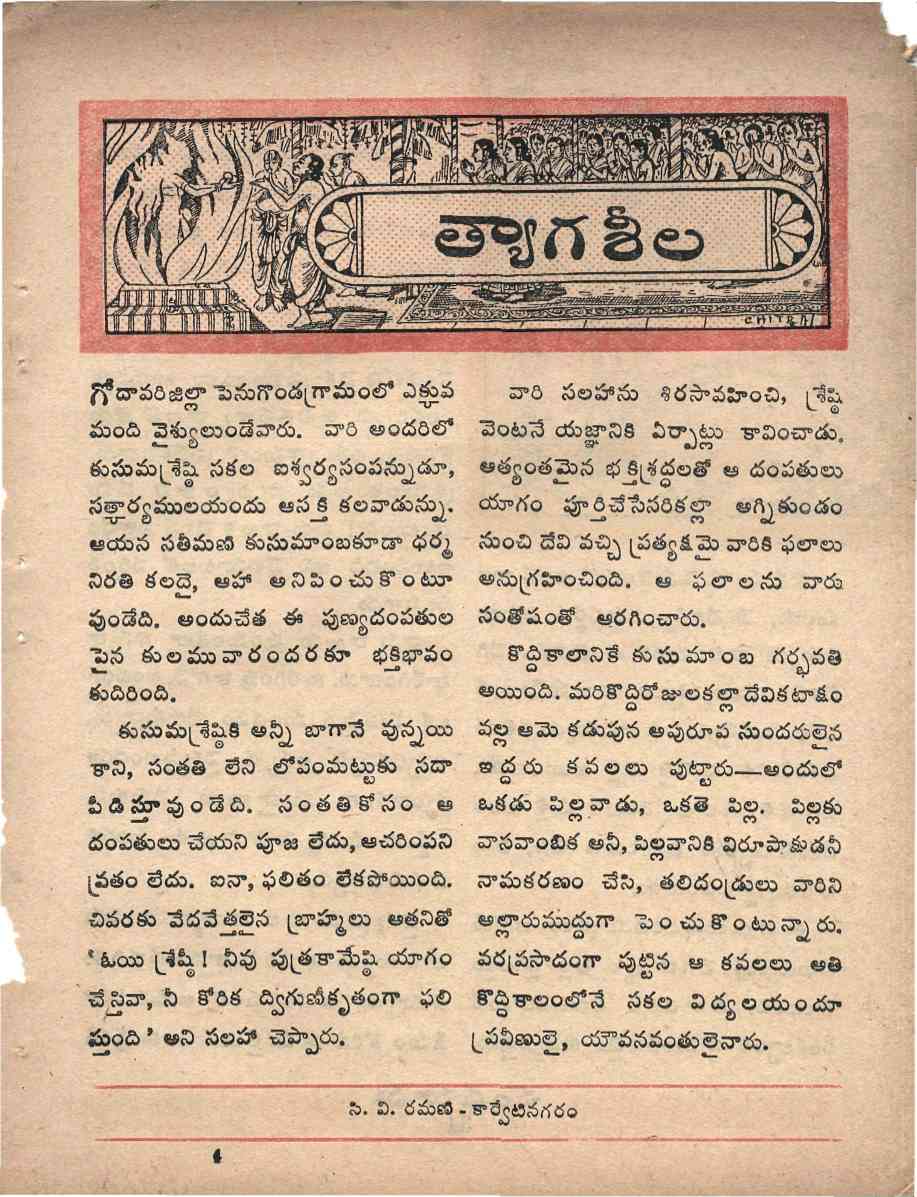 త్యాగశీల
CHITRA
గోదావరిజిల్లా పెనుగొండగ్రామంలో ఎక్కువ
మంది వైశ్యులుండేవారు. వారి అందరిలో
కుసుమశ్రేష్ఠి సకల ఐశ్వర్యసంపన్నుడూ,
సత్కార్యములయందు ఆసక్తి కలవాడున్ను.
ఆయన సతీమణి కుసుమాంబకూడా ధర్మ
నిరతి కలదై, ఆహా అనిపించుకొంటూ
వుండేది. అందుచేత ఈ పుణ్యదంపతుల
పైన కులమువారందరకూ భక్తిభావం
కుదిరింది.
కుసుమశ్రేష్ఠికి అన్నీ బాగానే వున్నయి
కాని, సంతతి లేని లోపంమట్టుకు సదా
పీడిస్తూవుండేది. సంతతికోసం ఆ
దంపతులు చేయని పూజ లేదు, ఆచరింపని
వ్రతం లేదు. ఐనా, ఫలితం లేకపోయింది.
చివరకు వేదవేత్తలైన బ్రాహ్మలు అతనితో
‘ఓయి శ్రేష్ఠీ! నీవు పుత్రకామేష్ఠి యాగం
చేస్తివా, నీ కోరిక ద్విగుణీకృతంగా ఫలి
స్తుంది’ అని సలహా చెప్పారు.
వారి సలహాను శిరసావహించి, శ్రేష్ఠి
వెంటనే యజ్ఞానికి ఏర్పాట్లు కావించాడు.
అత్యంతమైన భక్తిశ్రద్ధలతో ఆ దంపతులు
యాగం పూర్తిచేసేసరికల్లా అగ్నికుండం
నుంచి దేవి వచ్చి ప్రత్యక్షమై వారికి ఫలాలు
అనుగ్రహించింది. ఆ ఫలాలను వారు
సంతోషంతో ఆరగించారు.
కొద్దికాలానికే కుసుమాంబ గర్భవతి
అయింది. మరికొద్దిరోజులకల్లా దేవికటాక్షం
వల్ల ఆమె కడుపున అపురూప సుందరులైన
ఇద్దరు కవలలు పుట్టారు—అందులో
ఒకడు పిల్లవాడు, ఒకతె పిల్ల. పిల్లకు
వాసవాంబిక అనీ, పిల్లవానికి విరూపాక్షుడనీ
నామకరణం చేసి, తలిదండ్రులు వారిని
అల్లారుముద్దుగా పెంచుకొంటున్నారు.
వరప్రసాదంగా పుట్టిన ఆ కవలలు అతి
కొద్దికాలంలోనే సకల విద్యలయందూ
ప్రవీణులై, యౌవనవంతులైనారు.
సి. వి. రమణి - కార్వేటినగరం
4